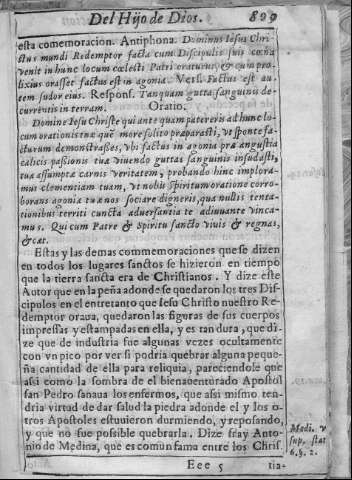 Del Hijo de Dios. 809
esta comemoracion. Antiphona. Dominus Iesus Chri-
stus mundi Redemptor facta cum Discipulis suis cœna
venit in hunc locum cœlesti Patri oraturus, & cum pro-
lixius orasset factus est in agonia. Vers. Factus est au-
tem sudor eius. Respons. Tanquam gutta sanguinis de-
currentis in terram. Oratio.
Domine Iesu Christe qui ante quam patereris ad hunc lo-
cum orationis tuæ quẽ more solito præparasti, vt sponte fa-
cturum demonstrasses, vbi factus in agonia præ angustia
calicis passionis tuæ viuendo guttas sanguinis insudasti,
tuæ assumptæ carnis veritatem, probando hinc implora-
mus clementiam tuam, vt nobis spiritum oratione corro-
borans agonia tuæ nos sociare digneris, qua nullis tenta-
tionibus territi cuncta aduersantia te adiuuante vinca-
mus. Qui cum Patre & spiritu sancto viuis & regnas,
&cæt.
Estas y las demas commemoraciones que se dizen
en todos los lugares sanctos se hizieron en tiempo
que la tierra sancta era de Christianos. Y dize este
Autor que en la peña adonde se quedaron los tres Dis-
cipulos en el entretanto que Iesu Christo nuestro Re-
demptor oraua, quedaron las figuras de sus cuerpos
impressas y estampadas en ella, y es tan dura, que di-
ze que de industria fue algunas vezes ocultamente
con vn pico por ver si podria quebrar alguna peque-
ña cantidad de ella para reliquia, pareciendole que
assi como la sombra de el bienauenturado Apostol
san Pedro sanaua los enfermos, que assi mismo ten-
dria virtud de dar salud la piedra adonde el y los o-
tros Apostoles estuuieron durmiendo, y reposando,
y que no fue possible quebrarla. Dize fray Anto-
nio de Medina, que es comun fama entre los Chris-
Medi. v
sup. stat
6. §. 2.
Eee 5 tia-